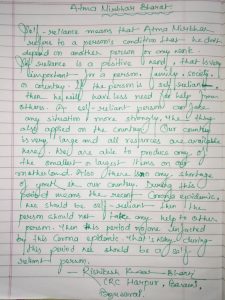 Atma Nirbhar Bharat
Self-reliance means that Atma Nirbhar
refers to a person's condition that he don't
depend on another person for any work.
Self reliance is a positive need, that is very
important for a person, family, society,
or country. If the person is self-reliant,
then he will have less need of help from
others. A self-reliant person can face
any situation more strongly, the they
also applied on the country. Our country
is very large and all resources are available
here, they are able to produce any of
the smallest or largest items on our
motherland. Also there is no any shortage
of youth in our country. During this
period means the recent Corona epidemic,
he should be self-reliant. Then the
person should not take any help to other
person. Then this period no one infected
by this Corona epidemic that's why during
this period he should be a self-
reliant person.
Kumar
CRC Harpur,